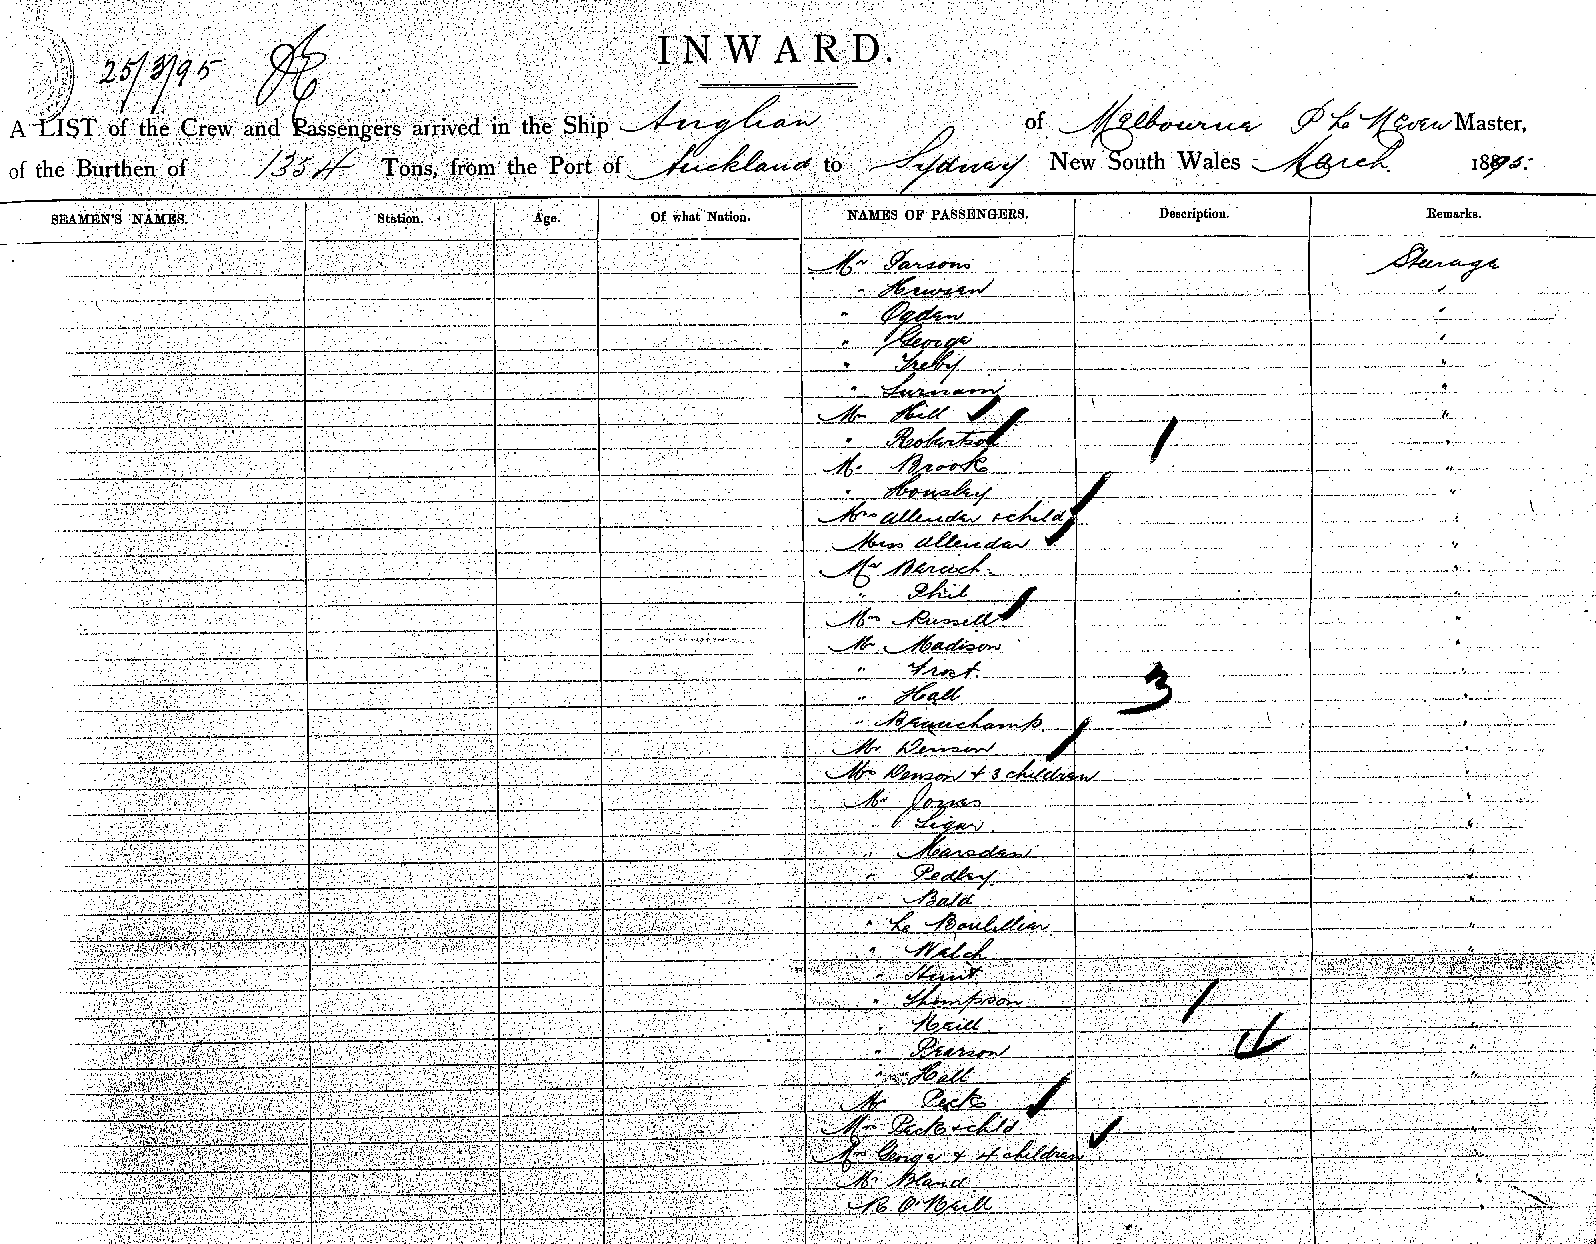 25/3/95
INWARD.
A LIST of the Crew and Passengers arrived in the Ship Anglian of Melbourne Master,
of the Burthen of 1354 Tons, from the Port of Auckland to Sydney New South Wales March 1895.
SEAMEN'S NAMES. Station. Age. Of what Nation. NAMES OF PASSENGERS. Description. Remarks.
Mr Parsons Steerage
" "
" Ogden "
" George "
" Treby "
" "
Mrs Hill "
" Robertson "
Mr Brook "
" Housley "
Mrs Allender + child "
Miss Allender "
Mr "
" Phil "
Mrs Russell "
Mr Madison "
" Frost "
" Hall 3 "
" Beauchamp "
Mr Denson "
Mrs Denson + 3 children "
Mr Jones "
" Ligar "
" Marsden "
" Pedley "
" Bald "
" Le "
" Walch "
" Hunt "
" Thompson "
" Neill "
" Pearson 4 "
" Hall "
Mr Peck "
Mrs Peck + child "
Mrs George + 4 children "
Mr Bland "
O'Neill "